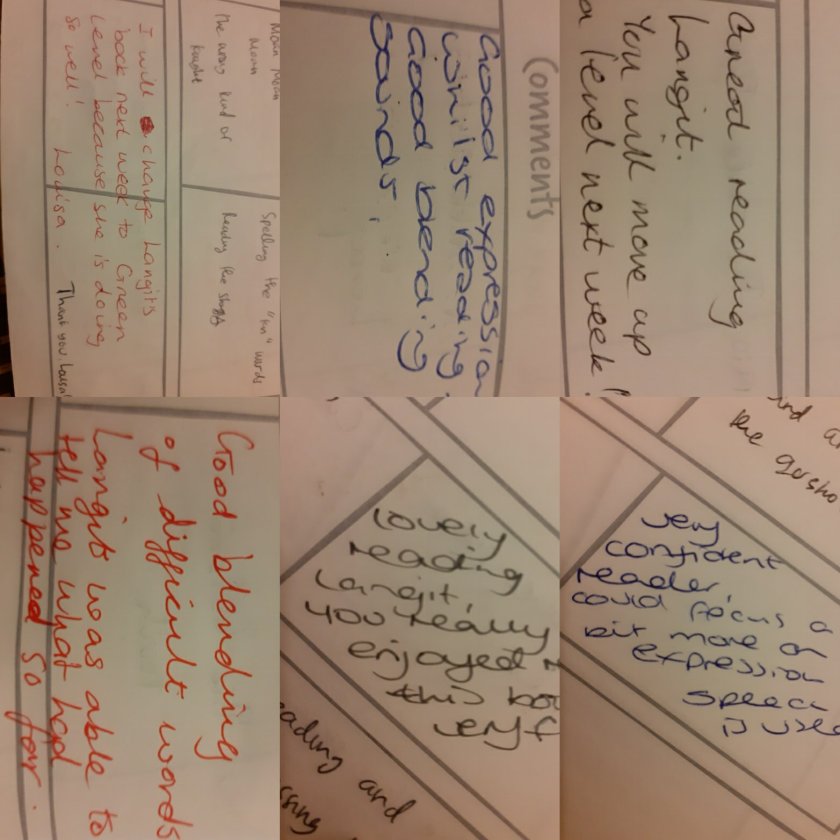 Moon Moon
Moon
The wrong kind of
Spelling the "
words
Reading the
I will change Langit's
book next week to Green
Level because she is doing
so well! Louisa.
Thank you Louisa
Comments
Good expression
whilst reading.
Good blending
sounds.
Good reading
Langit.
You will move up
a level next week!
Good blending
of difficult words
Langit was able to
tell me what had
happened so far.
Lovely
reading
Langit,
you really
enjoyed
this
very
and
very
confident
reader,
could focus a
bit more on
expression
the